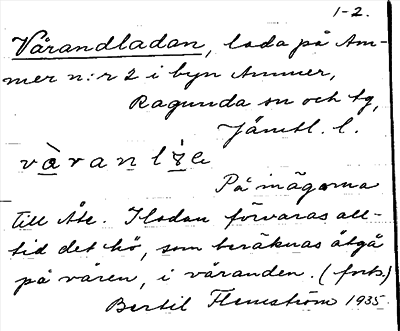 1-2.
Vårandladan, lada på Am-
mer n:r 2 i byn Ammer,
Ragunda sn och tg,
Jämtl. l.
På mägorna
till Åte. I ladan förvaras all-
tid det hö, som beräknas åtgå
på våren, i våranden. (forts.)
Bertil Flemström 1935